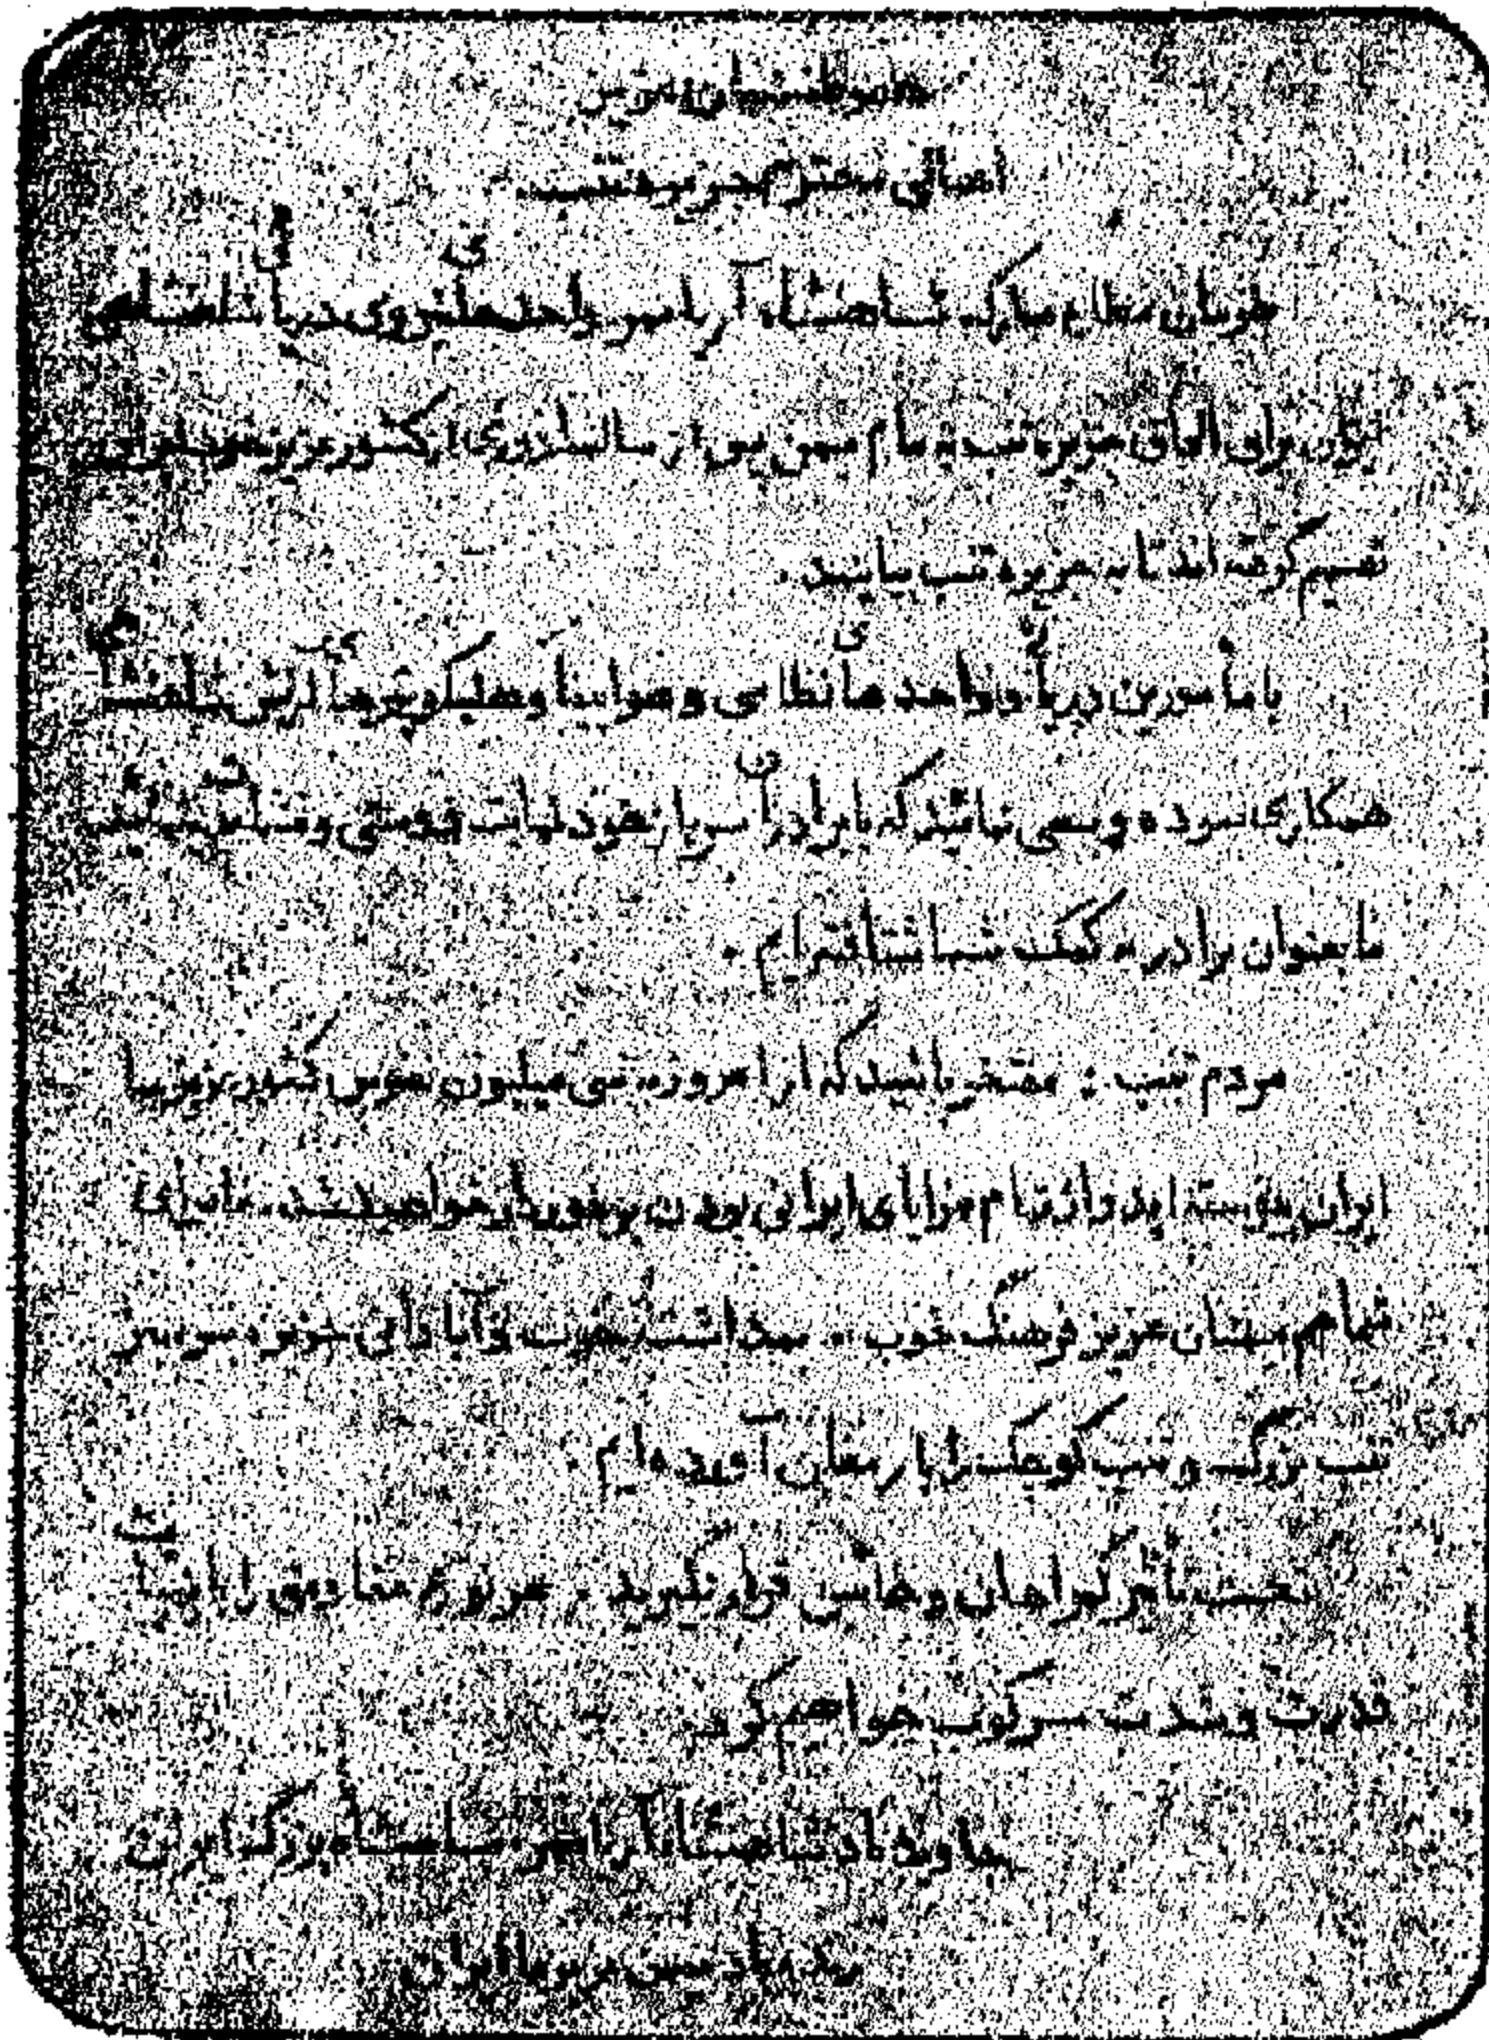 هموطنان عزیز
اهالی محترم جزیره تنب
بفرمان مطاع مبارک شاهنشاه آریامهر واحدهای نیروی دریائی شاهنشاهی
ایران برای الحاق جزیره تنب به مام میهن پس از سالها دوری از کشور عزیز خود ایران
تصمیم گرفته اند تا به جزیره تنب بیایند .
با مأمورین دریائی و واحدهای نظامی و هواپیما و هلیکوپترهای ارتش شاهنشاهی
همکاری نموده و سعی نمائید که با برادران سرباز خود نهایت دوستی و
ما بعنوان برادر به کمک شما شتافته ایم .
مردم تنب : مفتخر باشید که از امروز به سی میلیون نفوس کشور عزیز ما
ایران پیوسته اید و از تمام مزایای ایرانی بودن برخوردار خواهید شد . ما برای
شما هم میهنان عزیز فرهنگ خوب .. بهداشت خوب و آبادانی جزیره سرسبز
تنب بزرگ و تنب کوچک را بارمغان آورده ایم .
تحت تأثیر گمراهان و خائنین قرار نگیرید . هر نوع مقاومتی را با نهایت
قدرت و شدت سرکوب خواهیم کرد
جاوید باد شاهنشاه آریامهر شاهنشاه بزرگ ایران
زنده باد میهن عزیز ما ایران